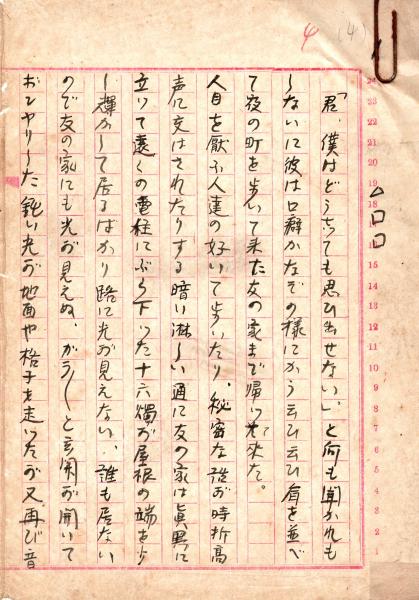 4 (4)
△□□
「君、僕はどうしても思ひ出せない」と何も聞かれも
しないに彼は口癖かなぞの様にかう云ひ云ひ肩を並べ
て夜の町を歩いて来た友の家まで帰って来た。
人目を厭ふ人達の好いて歩いたり、秘密な話が時折高
声に交はされたりする暗い淋しい通に友の家は真黒に
立って遠くの電柱にぶら下った十六燭が屋根の端を少
し輝かして居るばかり路に光が見えない、誰も居ない
ので友の家にも光が見えぬ、がラ/\と玄関が開いて
ボンヤリした鈍い光が地面や格子を走ったが又再び音
24
23
22
21
20
19
18
17
15
14
13
12
11
10
9
8
7
6
5
4
3
2
1